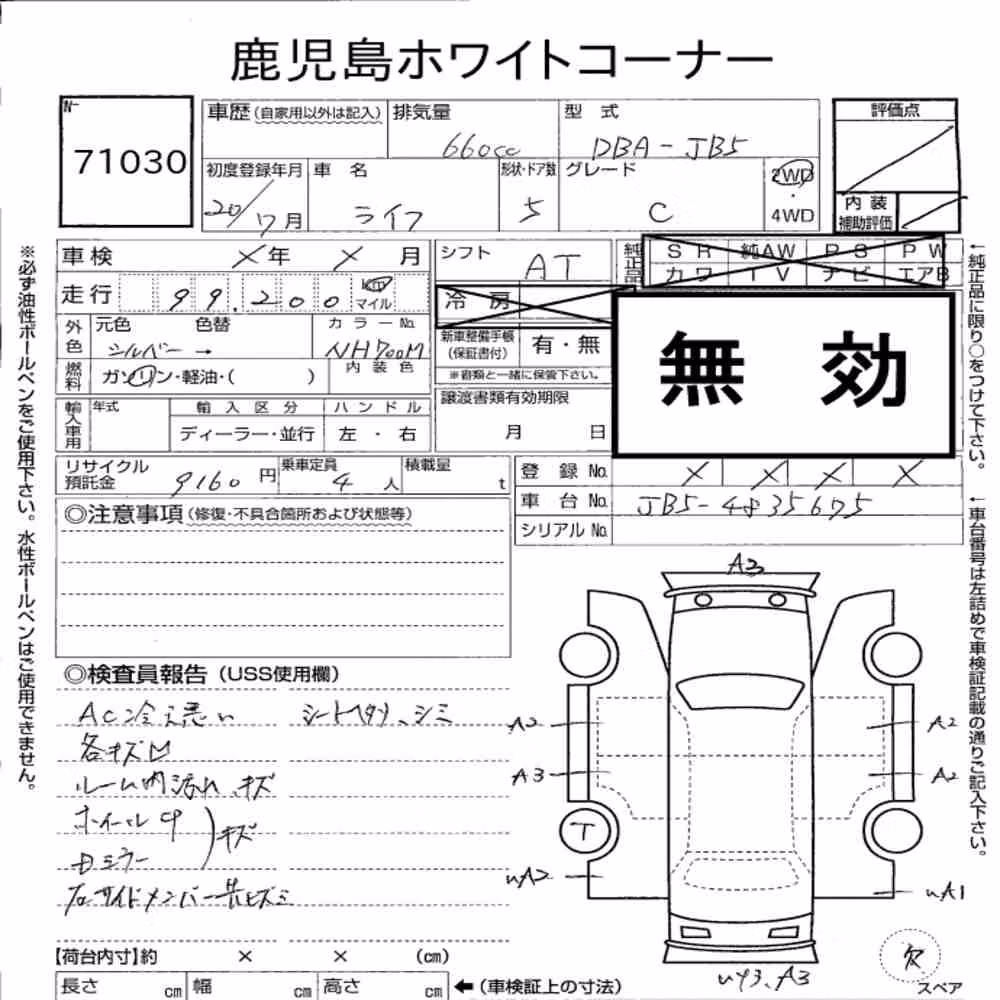 鹿児島ホワイトコーナー
No. 71030
車歴(自家用以外は記入) 排気量 660cc 型式 DBA-JB5 評価点
初度登録年月 20/7月 車名 ライフ 形状・ドア数 5 グレード C 2WD・4WD
内装補助評価
車検 ×年 ×月 シフト AT 純正品 SR 純AW PS PW
カワ TV ナビ エアB
走行 99,200 km マイル 冷房
外色 元色 シルバー → 色替 カラーNo. NH700M 新車整備手帳(保証書付) 有・無
※書類と一緒に保管下さい。
無効
燃料 ガソリン・軽油・( ) 内装色
輸入車用 年式 輸入区分 ハンドル 譲渡書類有効期限
ディーラー・並行 左・右 月 日
リサイクル預託金 9160円 乗車定員 4人 積載量 t 登録No. × × × ×
車台No. JB5-4835675
シリアルNo.
◎注意事項(修復・不具合箇所および状態等)
◎検査員報告(USS使用欄)
AC冷え悪い シートスレ、シミ
各キズ凹
ルーム内汚れ、キズ
ホイールCP
Dミラー キズ
A3
A2 A2
A3 A2
T
uA2 uA1
A3
欠
スペア
【荷台内寸】約 × × (cm)
長さ cm 幅 cm 高さ cm ←(車検証上の寸法)
※必ず油性ボールペンをご使用下さい。水性ボールペンはご使用できません。
←純正品に限り○をつけて下さい。
←車台番号は左詰めで車検証記載の通りご記入下さい。